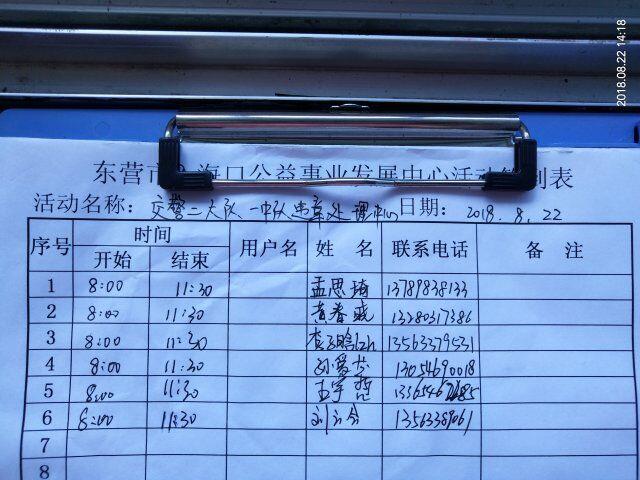 2018.08.22 14:18
东营市 海口公益事业发展中心活动签到表
活动名称: 交警二大队一中队违章处理中心 日期: 2018.8.22
序号 时间 用户名 姓 名 联系电话 备 注
开始 结束
1 8:00 11:30 孟思琦 13789838133
2 8:00 11:30 黄春 13380317386
3 8:00 11:30 13563379531
4 8:00 11:30 孙爱芬 13054690018
5 8:00 11:30 王宇哲
6 8:00 11:30 刘 13563389061
7
8